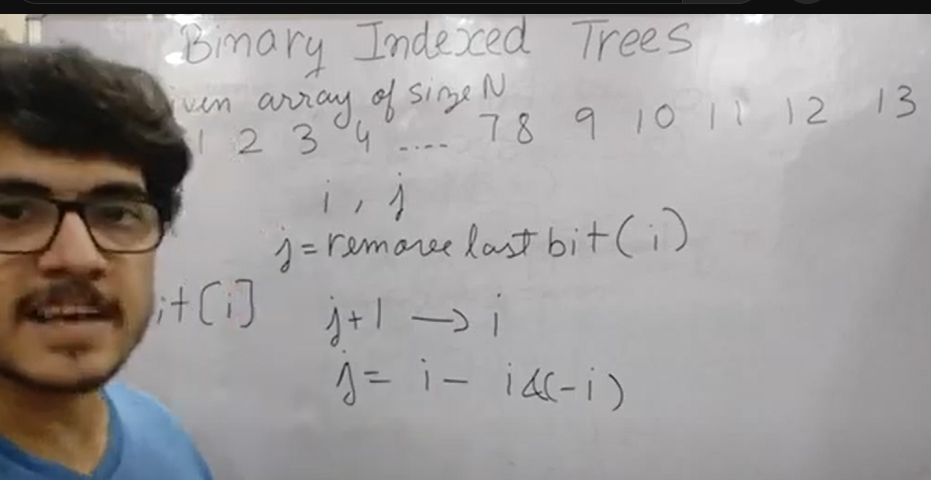 Binary Indexed Trees
iven array of size N
1 2 3 4 .... 7 8 9 10 11 12 13
i , j
j = remove last bit ( i )
it [i] j+1 → i
j = i - i&(-i)